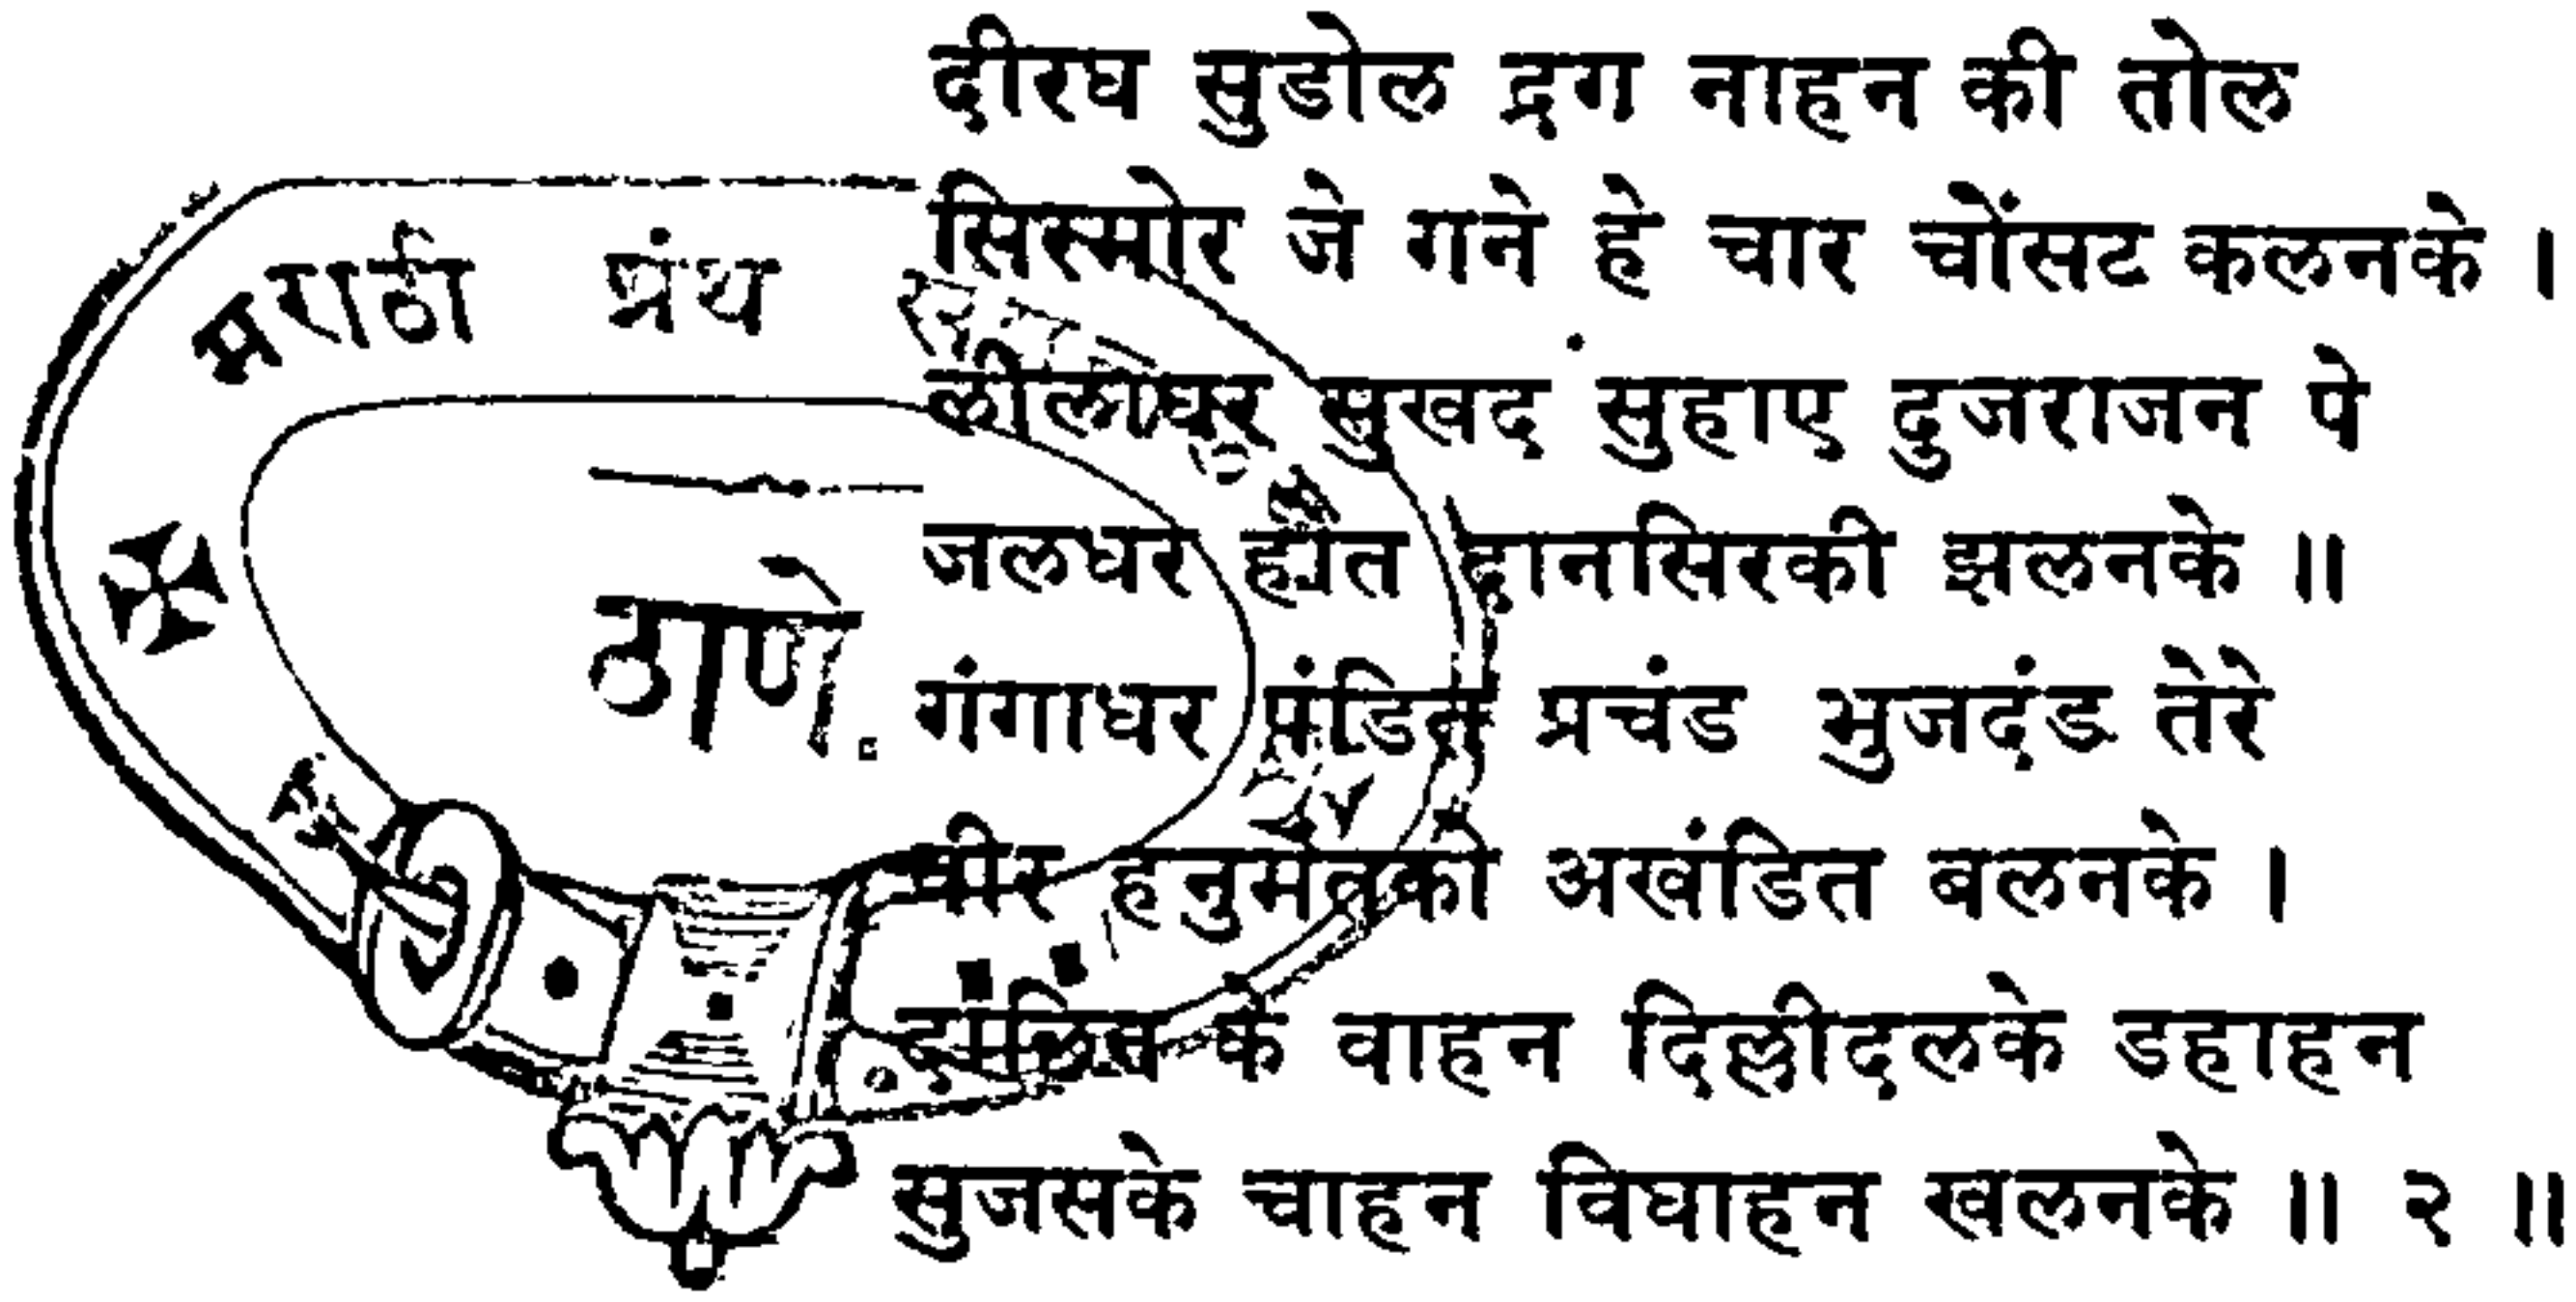 दीरघ सुडोल द्रग नाहन की तोल
सिरमोर जे गने हे चार चोंसट कलनके ।
लीलाधर सुखद सुहाए दुजराजन पे
जलधर होत दानसिरकी झलनके ॥
गंगाधर पंडित प्रचंड भुजदंड तेरे
बीर हनुमंतकी अखंडित बलनके ।
के वाहन दिल्लीदलके डहाहन
सुजसके चाहन विघाहन खलनके ॥ २ ॥
मराठी ग्रंथ
ठाणे.